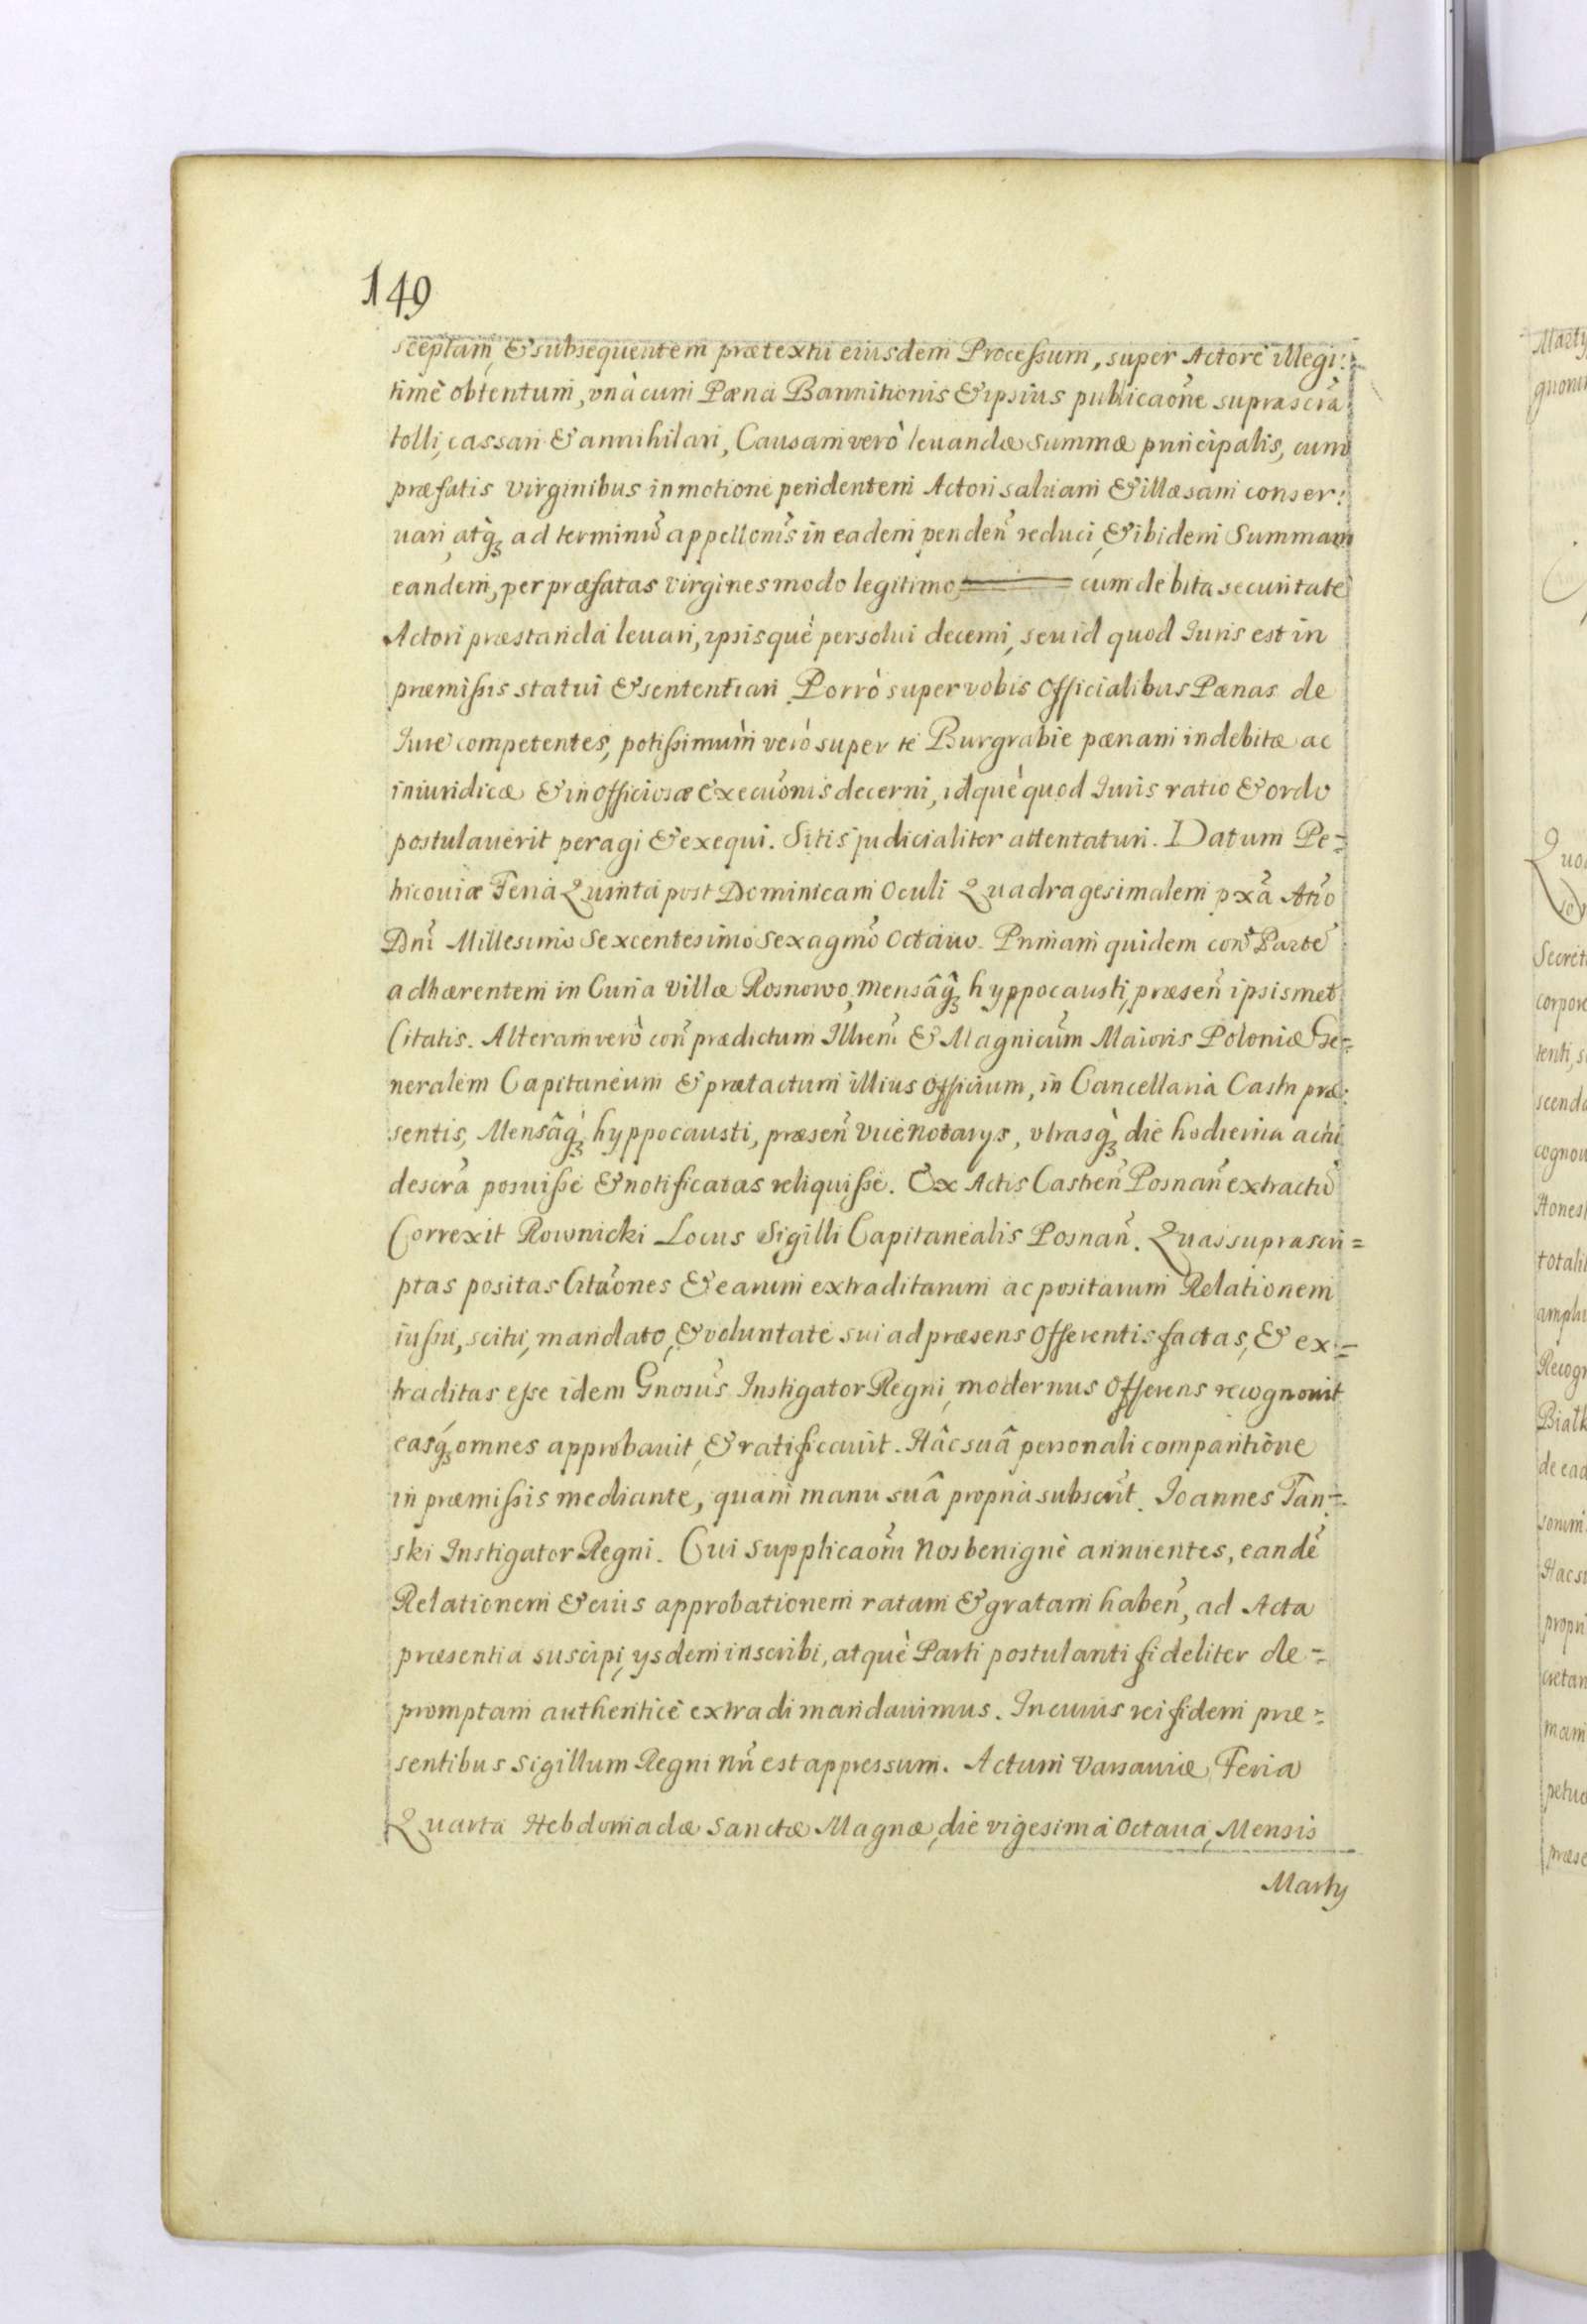 149
sceptam, & subsequentem prætextu eiusdem Processum, super Actore illegi:
time obtentum, vnà cum Pæna Bannitionis & ipsius publicaone suprascra
tolli, cassari & annihilari, Causam verò leuandæ summæ principalis, cum
præfatis virginibus in motione pendentem Actori saluam & illæsam conser:
uari, atq̀ ad terminu appellonis in eadem penden reduci, & ibidem Summam
eandem, per præfatas virgines modo legitimo cum debita securitate
Actori præstanda leuari, ipsisquè persolui decerni, seu id quod Iuris est in
præmissis statui & sententiari. Porrò super vobis Officialibus Pænas de
Iure competentes, potissimum verò super te Burgrabie pænam indebitæ ac
iniuridicæ & inofficiosæ Execuonis decerni, idquè quod Iuris ratio & ordo
postulauerit peragi & exequi. Sitis judicialiter attentaturi. Datum Pe=
tricouiæ Feria Quinta post Dominicam Oculi Quadragesimalem pxa Ano
Dni Millesimo Sexcentesimo Sexagmo Octauo. Primam quidem con Parte
adhærentem in Curia villæ Rosnowo, mensâq̂ hyppocausti, præsen ipsismet
Citatis. Alteram verò con prædictum Illrem & Magnicum Maioris Poloniæ Ge=
neralem Capitaneum & prætactum illius officium, in Cancellaria Castri præ:
sentis, Mensâq̀ hyppocausti, præsen vice notarys, vtrasq̀ die hodierna
descra posuisse & notificatas reliquisse. Ex Actis Castren Posnan extractu
Correxit Rownicki Locus Sigilli Capitanealis Posnan. Quas suprascri=
ptas positas Cituones & earum extraditarum ac positarum Relationem
iussu, scitu, mandato, & voluntate sui ad præsens Offerentis factas, & ex=
traditas esse idem Gnosus Instigator Regni, modernus Offerens recognouit
easq́ omnes approbauit, & ratificauit. Hâc suâ personali comparitione
in præmissis mediante, quam manu suâ propria subscrit. Joannes Tan=
ski Instigator Regni. Cui Supplicaoni Nos benignè annuentes, eande
Relationem & eius approbationem ratam & gratam haben, ad Acta
præsentia suscipi, ysdem inscribi, atquè Parti postulanti fideliter de=
promptam authenticè extradi mandauimus. In cuius rei fidem præ=
sentibus Sigillum Regni nri est appressum. Actum Varsauiæ Feria
Quarta Hebdomadæ Sanctæ Magnæ, die vigesima Octaua, Mensis
Marty